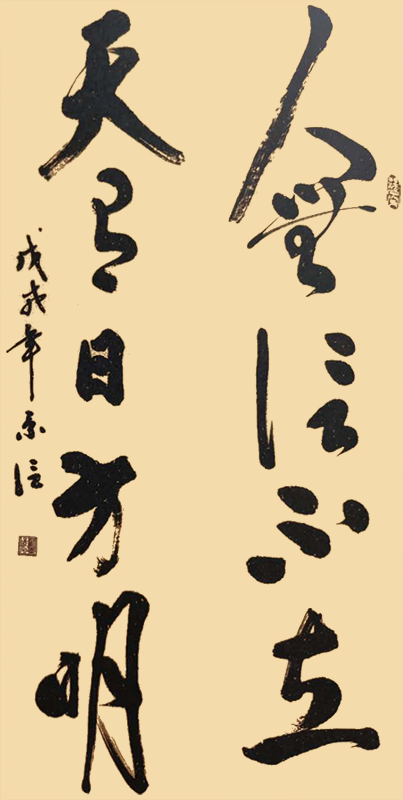 人無信不立
天有日方明
戊戌年信